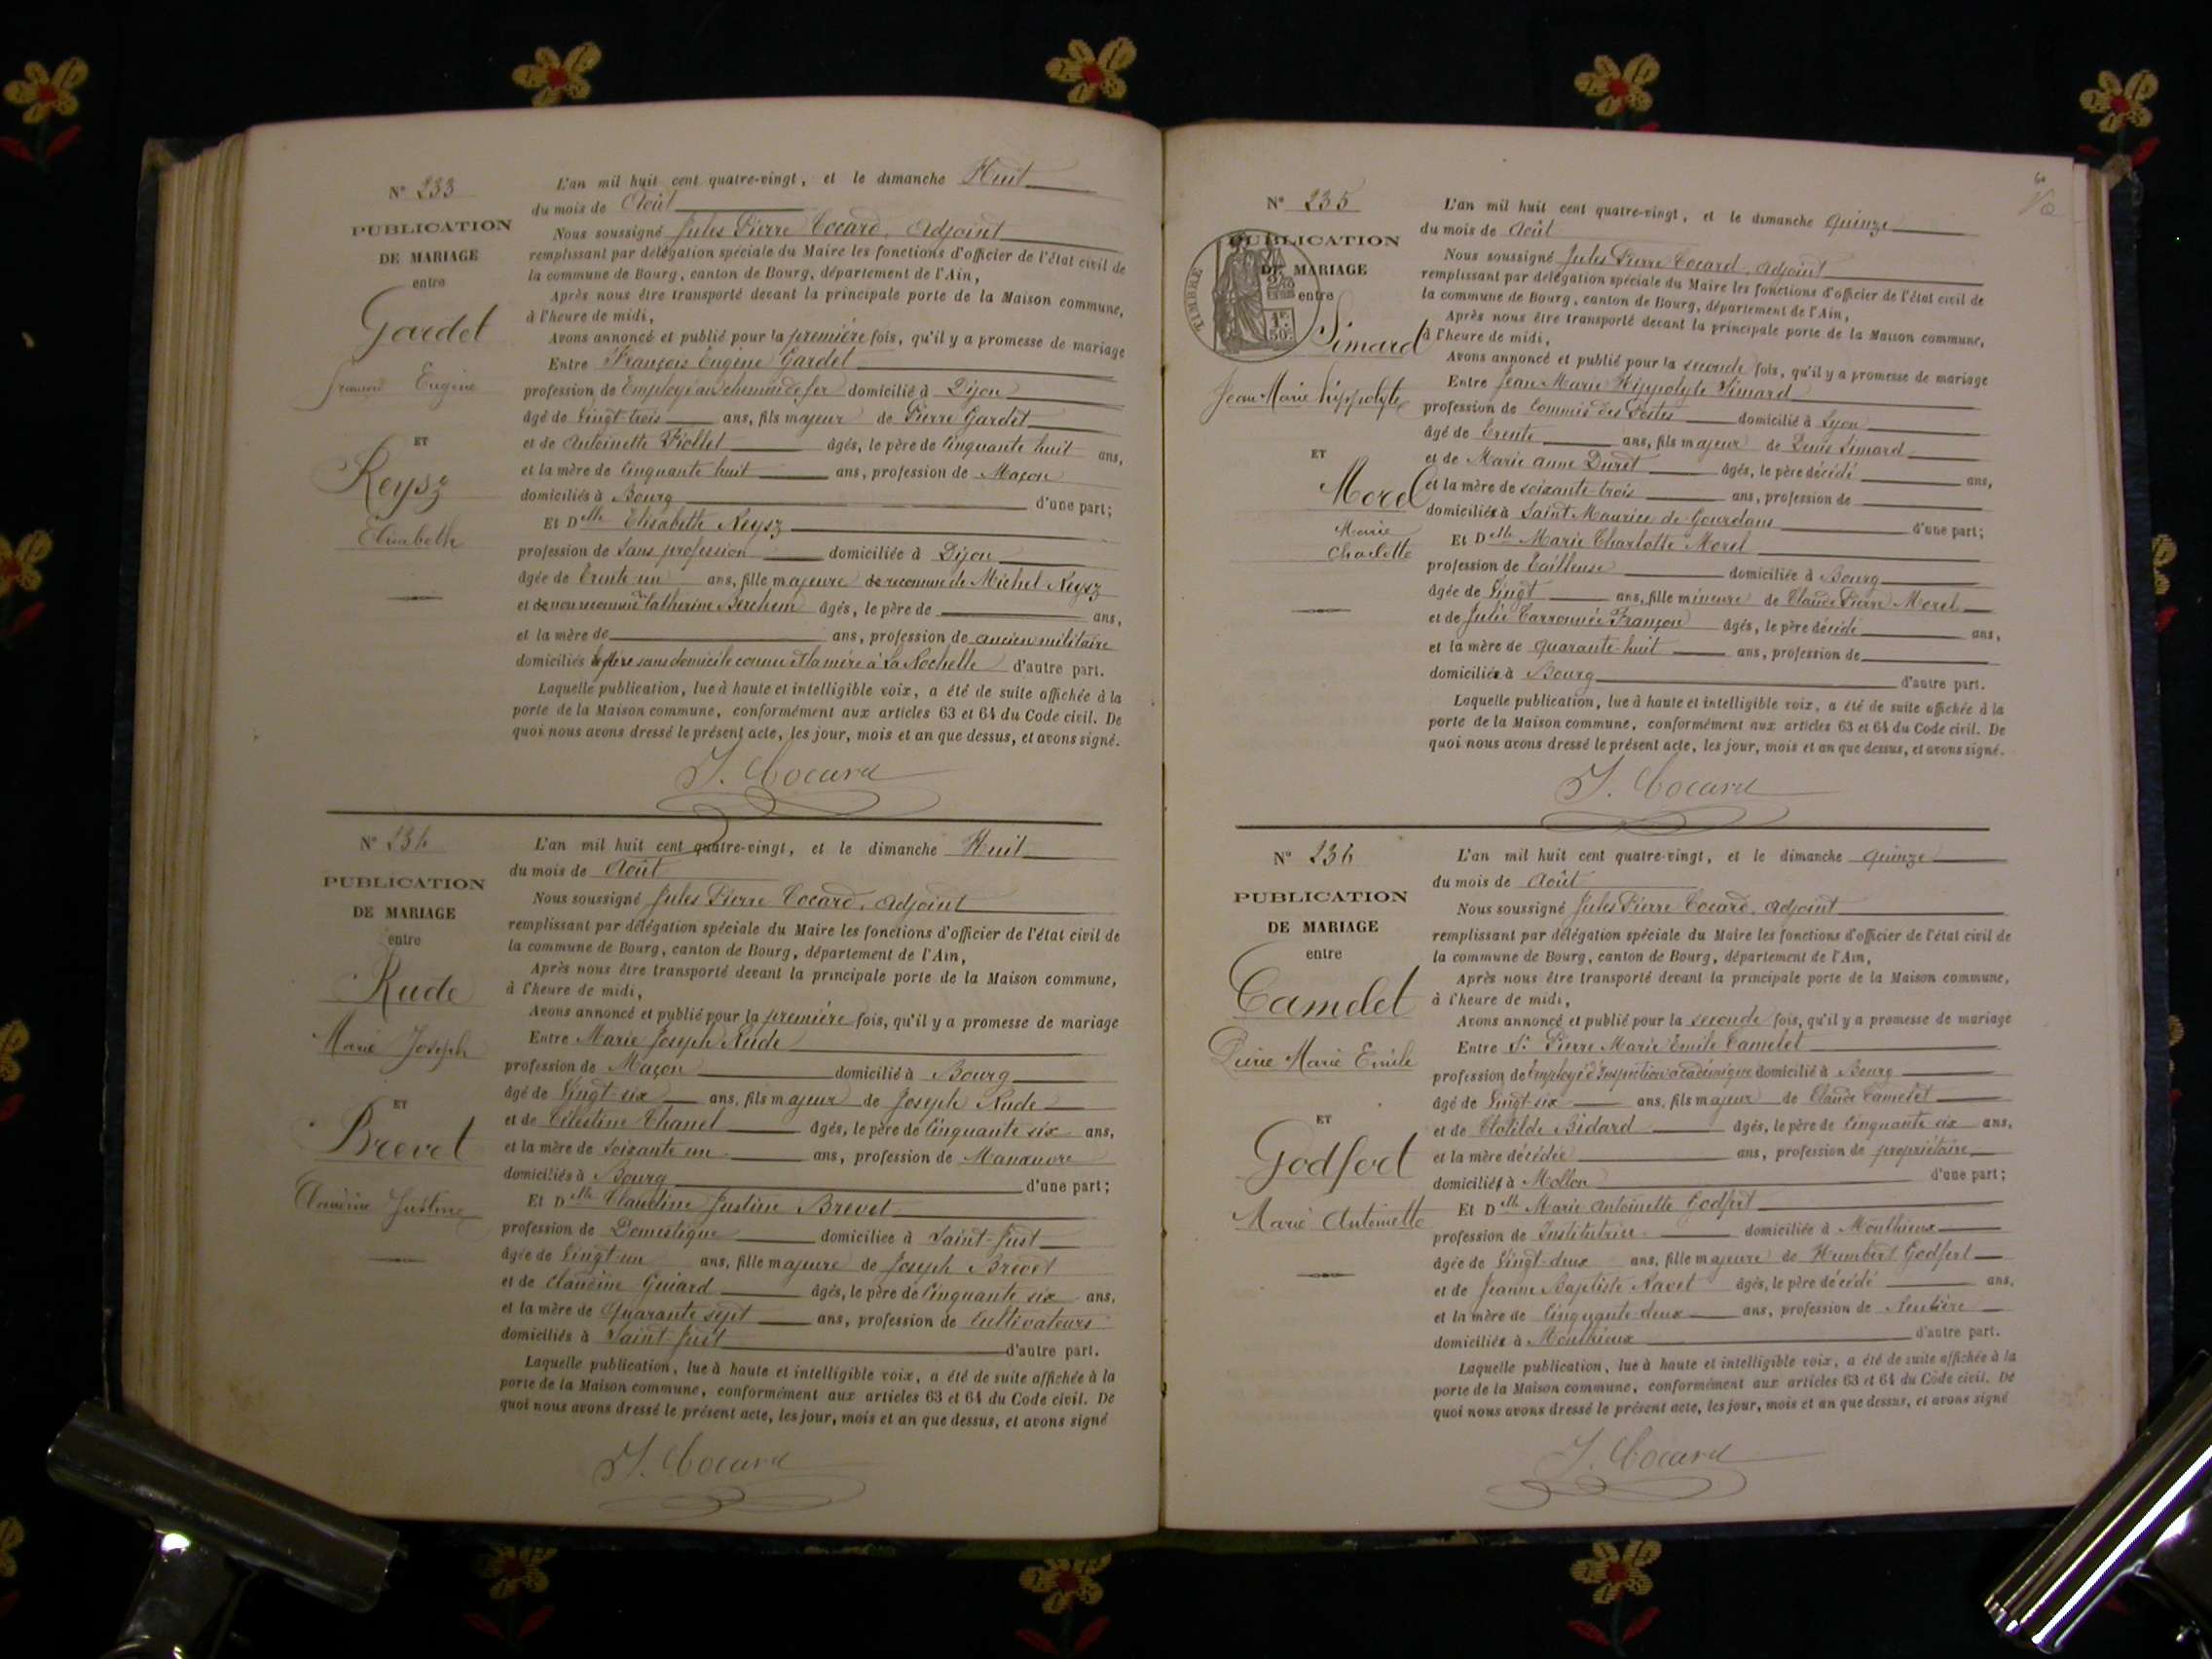 N° 233
PUBLICATION
DE MARIAGE
entre
Gardet
François Eugène
ET
Reysz
Elisabeth
L'an mil huit cent quatre-vingt, et le dimanche Huit
du mois de Août
Nous soussigné Jules Pierre Cocard, Adjoint
remplissant par délégation spéciale du Maire les fonctions d'officier de l'état civil de
la commune de Bourg, canton de Bourg, département de l'Ain,
Après nous être transporté devant la principale porte de la Maison commune,
à l'heure de midi,
Avons annoncé et publié pour la première fois, qu'il y a promesse de mariage
Entre François Eugène Gardet
profession de Employé au chemin de fer domicilié à Dijon
âgé de Vingt-trois ans, fils majeur de Pierre Gardet
et de Antoinette Fiollet âgés, le père de Cinquante huit ans,
et la mère de Cinquante huit ans, profession de Maçon
domiciliés à Bourg d'une part;
Et Delle Elisabette Reysz
profession de Sans profession domiciliée à Dijon
âgée de Trente un ans, fille majeure de reconnue de Michel Reysz
et de non reconnue Catherine Berchem âgés, le père de ans,
et la mère de ans, profession de ancien militaire
domiciliés le père sans domicile connu et la mère à La Rochelle d'autre part.
Laquelle publication, lue à haute et intelligible voix, a été de suite affichée à la
porte de la Maison commune, conformément aux articles 63 et 64 du Code civil. De
quoi nous avons dressé le présent acte, les jour, mois et an que dessus, et avons signé.
J. Cocard
N° 234
PUBLICATION
DE MARIAGE
entre
Rude
Marie Joseph
ET
Brevet
Claudine Justine
L'an mil huit cent quatre-vingt, et le dimanche Huit
du mois de Août
Nous soussigné Jules Pierre Cocard, Adjoint
remplissant par délégation spéciale du Maire les fonctions d'officier de l'état civil de
la commune de Bourg, canton de Bourg, département de l'Ain,
Après nous être transporté devant la principale porte de la Maison commune,
à l'heure de midi,
Avons annoncé et publié pour la première fois, qu'il y a promesse de mariage
Entre Marie Joseph Rude
profession de Maçon domicilié à Bourg
âgé de Vingt-six ans, fils majeur de Joseph Rude
et de Célestine Chanel âgés, le père de Cinquante six ans,
et la mère de Soixante un ans, profession de Manœuvre
domiciliés à Bourg d'une part;
Et Delle Claudine Justine Brevet
profession de Domestique domiciliée à Saint-Just
âgée de Vingt-un ans, fille majeure de Joseph Brevet
et de Claudine Guiard âgés, le père de Cinquante six ans,
et la mère de Quarante sept ans, profession de Cultivateurs
domiciliés à Saint Just d'autre part.
Laquelle publication, lue à haute et intelligible voix, a été de suite affichée à la
porte de la Maison commune, conformément aux articles 63 et 64 du Code civil. De
quoi nous avons dressé le présent acte, les jour, mois et an que dessus, et avons signé
J. Cocard
N° 235
PUBLICATION
DE MARIAGE
entre
TIMBRE
1F
50c
Simard
Jean Marie Hippolyte
ET
Morel
Marie
Charlotte
L'an mil huit cent quatre-vingt, et le dimanche Quinze
du mois de Août
Nous soussigné Jules Pierre Cocard, Adjoint
remplissant par délégation spéciale du Maire les fonctions d'officier de l'état civil de
la commune de Bourg, canton de Bourg, département de l'Ain,
Après nous être transporté devant la principale porte de la Maison commune,
à l'heure de midi,
Avons annoncé et publié pour la seconde fois, qu'il y a promesse de mariage
Entre Jean Marie Hippolyte Simard
profession de Commis des Postes domicilié à Lyon
âgé de Trente ans, fils majeur de Denis Simard
et de Marie Anne Duret âgés, le père décédé ans,
et la mère de soixante-trois ans, profession de
domiciliée à Saint Maurice de Gourdans d'une part;
Et Delle Marie Charlotte Morel
profession de Tailleuse domiciliée à Bourg
âgée de Vingt ans, fille mineure de Claude Pierre Morel
et de Julie Carronnée Françon âgés, le père décédé ans,
et la mère de quarante-huit ans, profession de
domiciliée à Bourg d'autre part.
Laquelle publication, lue à haute et intelligible voix, a été de suite affichée à la
porte de la Maison commune, conformément aux articles 63 et 64 du Code civil. De
quoi nous avons dressé le présent acte, les jour, mois et an que dessus, et avons signé.
J. Cocard
N° 236
PUBLICATION
DE MARIAGE
entre
Camelet
Pierre Marie Emile
ET
Godfert
Marie Antoinette
L'an mil huit cent quatre-vingt, et le dimanche quinze
du mois de Août
Nous soussigné Jules Pierre Cocard, Adjoint
remplissant par délégation spéciale du Maire les fonctions d'officier de l'état civil de
la commune de Bourg, canton de Bourg, département de l'Ain,
Après nous être transporté devant la principale porte de la Maison commune,
à l'heure de midi,
Avons annoncé et publié pour la seconde fois, qu'il y a promesse de mariage
Entre Sr Pierre Marie Emile Camelet
profession de Employé d'Inspection académique domicilié à Bourg
âgé de Vingt-six ans, fils majeur de Claude Camelet
et de Clotilde Bidard âgés, le père de Cinquante six ans,
et la mère décédée ans, profession de propriétaire
domicilié à Mollon d'une part;
Et Delle Marie Antoinette Godfert
profession de Institutrice domiciliée à Monthieux
âgée de Vingt-deux ans, fille majeure de Humbert Godfert
et de Jeanne Baptiste Navet âgés, le père décédé ans,
et la mère de Cinquante-deux ans, profession de Rentière
domiciliée à Monthieux d'autre part.
Laquelle publication, lue à haute et intelligible voix, a été de suite affichée à la
porte de la Maison commune, conformément aux articles 63 et 64 du Code civil. De
quoi nous avons dressé le présent acte, les jour, mois et an que dessus, et avons signé
J. Cocard